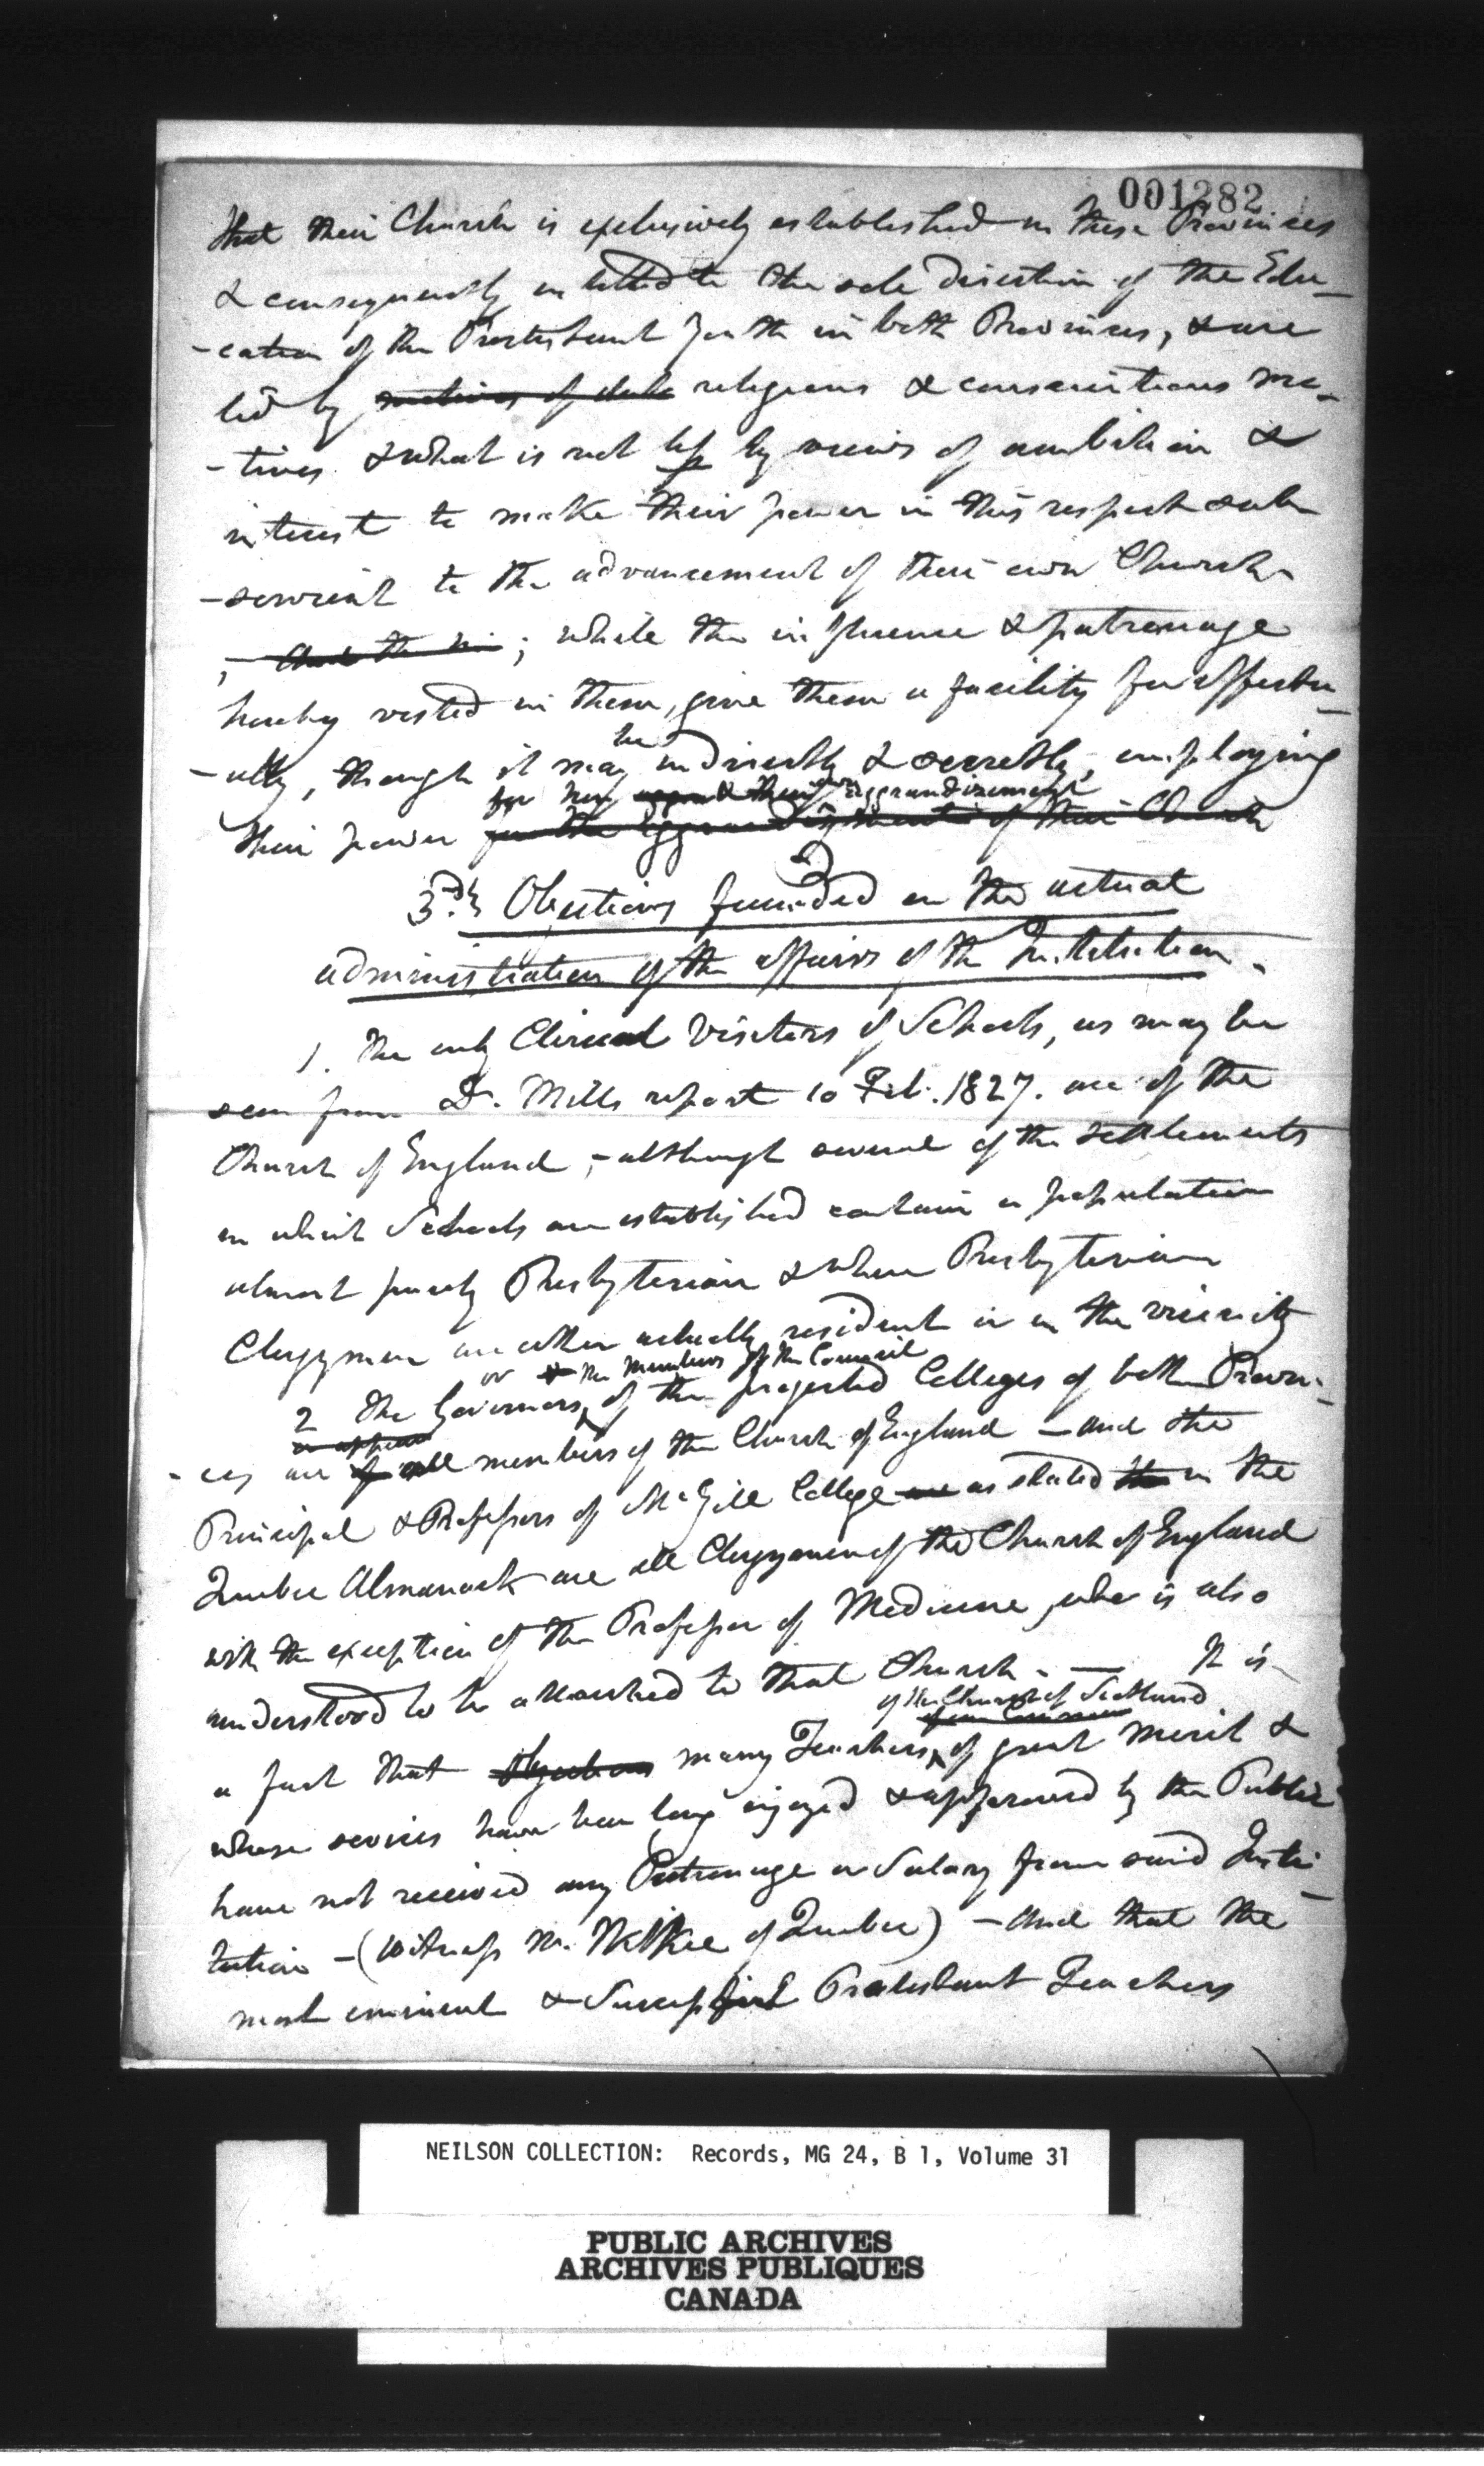 001282
that their Church is exclusively established in these Provinces
& consequently entitled to the sole direction of the Edu-
-cation of the Protestant youth in both Provinces, & are
led by motives of religious & conscientious mo-
-tives & what is not less by views of ambition &
interest to make their power in this respect sub
-servient to the advancement of their own Church
, And the ; while the influence & patronage
hereby vested in them, give them a facility for effectu-
be
-ally, though it may indirectly & secretly, employing
for their own aggrandizement
their power for the aggrandizement of their Church
3rd. Objections founded on the actual
administration of the affairs of the Institution.
1. The only Clerical Visitors of Schools, as may be
seen from Dr. Mills report 10 Feb. 1827. are of the
Church of England, - although several of the settlements
in which Schools are established contain a population
almost purely Presbyterian & where Presbyterian
Clergymen are either actually resident or in the vicinity
or the Members of the Council
2 The Governors of the projected Colleges of both Provin-
as appears
-ces are all members of the Church of England - and the
Principal & Professors of McGill College as stated in the
Quebec Almanack are all Clergymen of the Church of England
with the exception of the Professor of Medicine, who is also
understood to be attached to that Church. — It is
of the Church of Scotland
a fact that many Teachers, of great merit &
whose services have been long enjoyed & approved by the Public
have not received any Patronage or Salary from said Insti-
tution - (Witness Mr. Wilkie of Quebec) - And that the
most eminent & Successful Protestant Teachers
NEILSON COLLECTION: Records, MG 24, B 1, Volume 31
PUBLIC ARCHIVES
ARCHIVES PUBLIQUES
CANADA